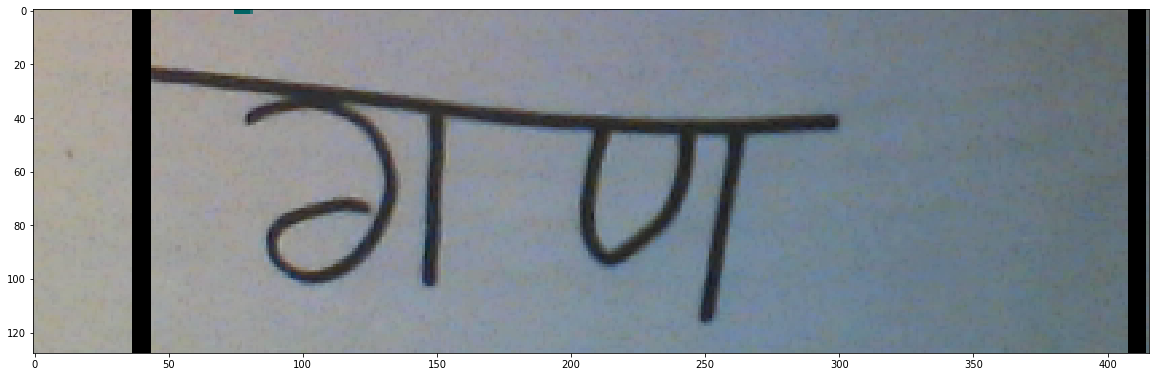 0
20
गण
40
60
80
100
120
0 50 100 150 200 250 300 350 400